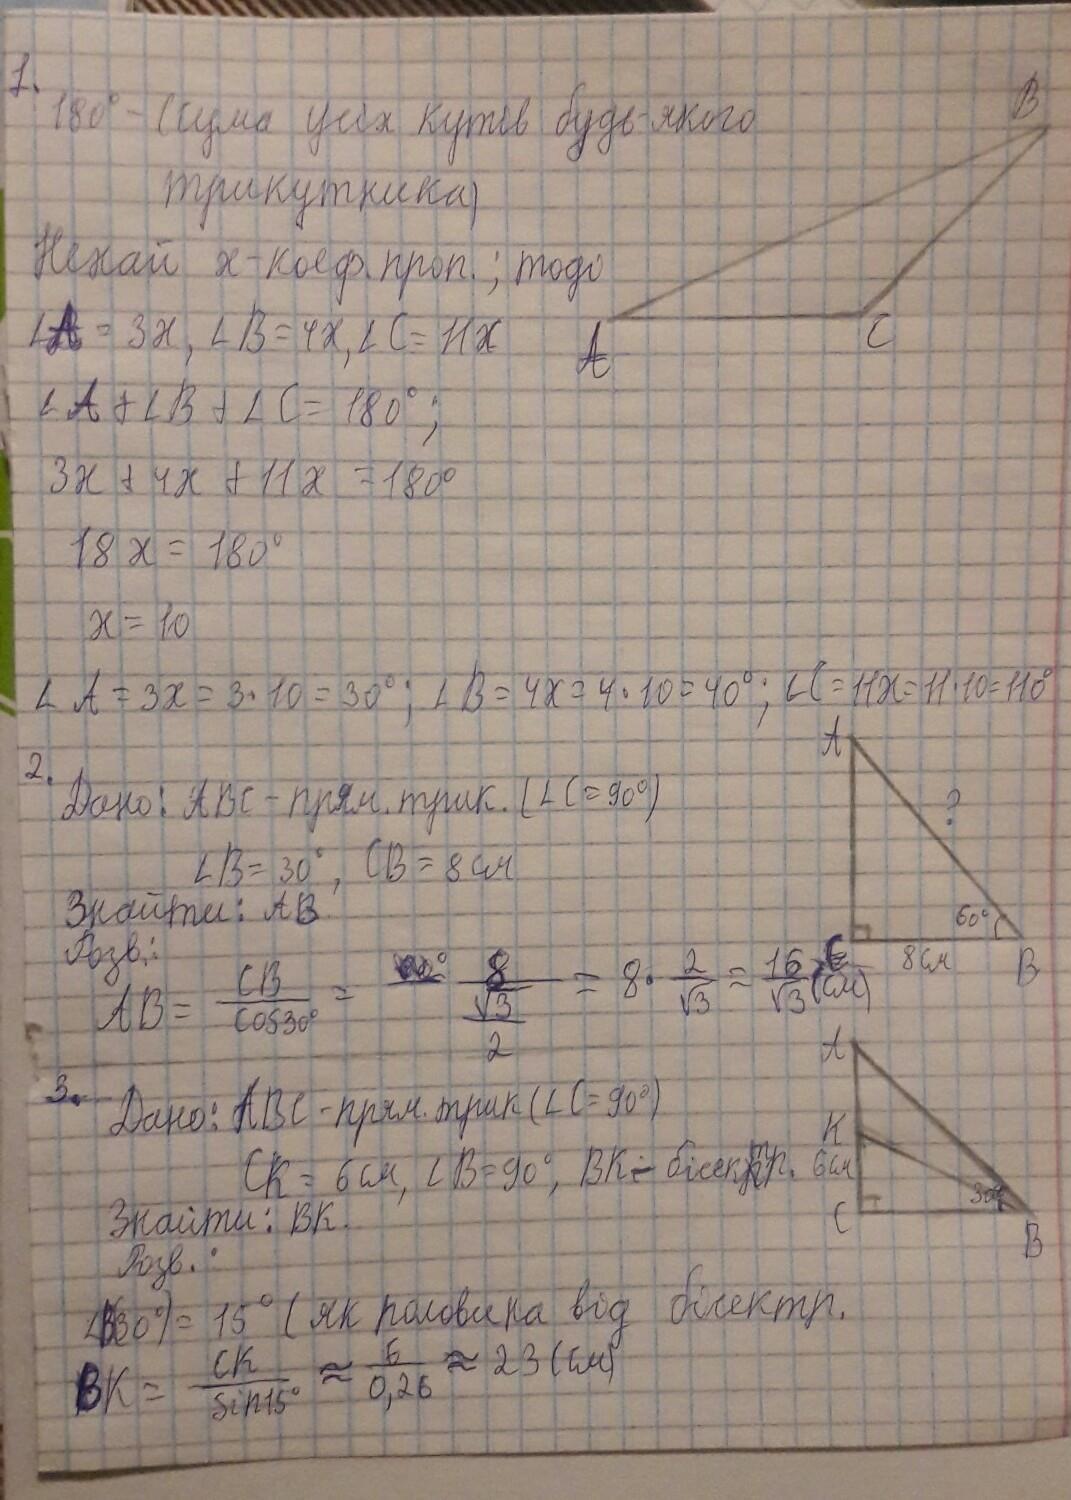 1.
180° - (сума усіх кутів будь-якого
трикутника)
Нехай x - коеф. проп.; тоді
∠A = 3x, ∠B = 4x, ∠C = 11x
B
A
C
∠A + ∠B + ∠C = 180°;
3x + 4x + 11x = 180°
18x = 180°
x = 10
∠A = 3x = 3·10 = 30°; ∠B = 4x = 4·10 = 40°; ∠C = 11x = 11·10 = 110°
2.
Дано: ABC - прям. трик. (∠C = 90°)
∠B = 30°, CB = 8 см
Знайти: AB
Розв.:
AB = CB/cos30° = 8/(√3/2) = 8 · 2/√3 = 16/√3 (см)
A
?
60°
C
8 см
B
3.
Дано: ABC - прям. трик (∠C = 90°)
CK = 6 см, ∠B = 90°, BK - бісектр.
Знайти: BK.
Розв.:
15° (як половина від бісектр.
BK = CK/sin15° ≈ 6/0,26 ≈ 23 (см)
A
K
6 см
C
30°
B